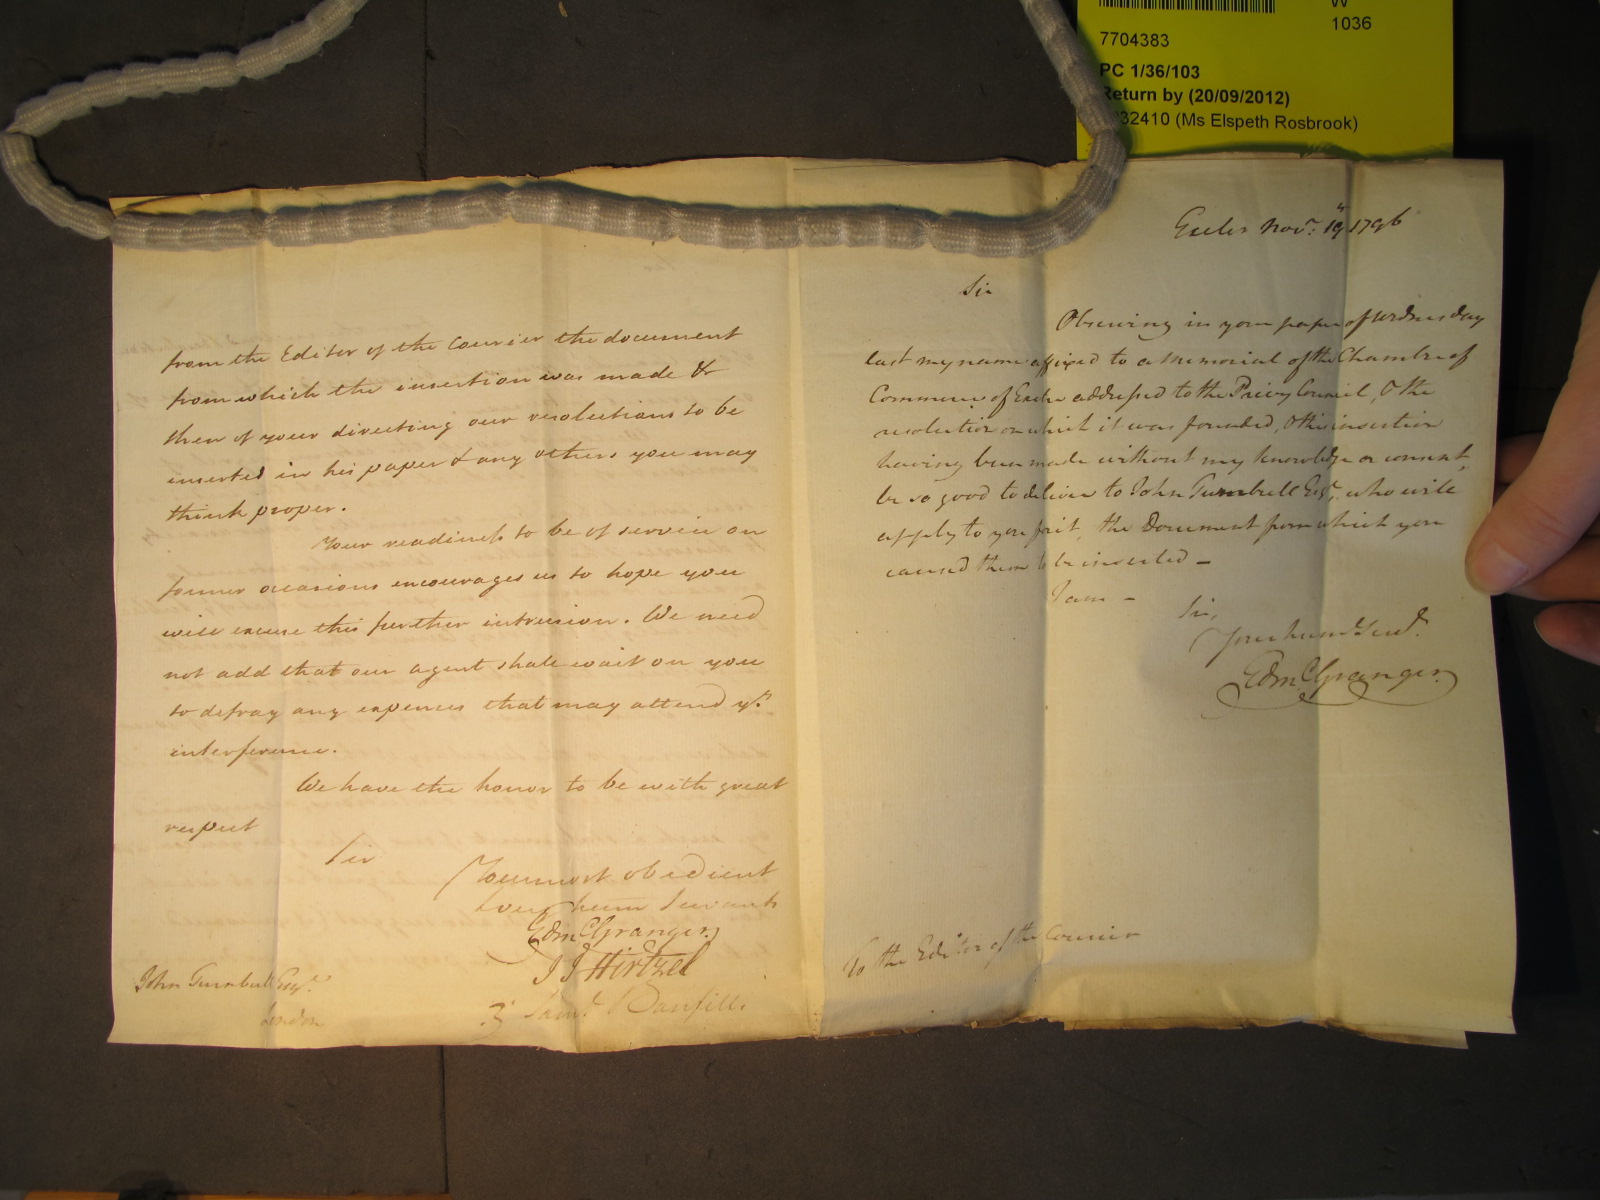 W
1036
7704383
PC 1/36/103
Return by (20/09/2012)
32410 (Ms Elspeth Rosbrook)
from the Editor of the Courier the document
from which the insertion was made &
then of your directing our resolutions to be
inserted in his paper & any others you may
think proper.
Your readiness to be of service on
former occasions encourages us to hope you
will excuse this further intrusion. We need
not add that our agent shall wait on you
to defray any expences that may attend yr.
interference.
We have the honor to be with great
respect
Sir
Your most obedient
very hum Servants
Edm Granger
J J Hirtzel
Saml. Banfill
John Turnbull Esqr.
London
Exeter Novr. 19 1796
Sir
Observing in your paper of Wednesday
last my name affixed to a Memorial of the Chamber of
Commerce of Exeter addressed to the Privy Council, & the
resolution on which it was founded, & this insertion
having been made without my knowledge or consent,
be so good to deliver to John Turnbull Esqr. who will
apply to you for it, the Document from which you
caused them to be inserted -
I am -
Sir,
Your hum Servt.
Edm Granger
To the Editor of the Courier